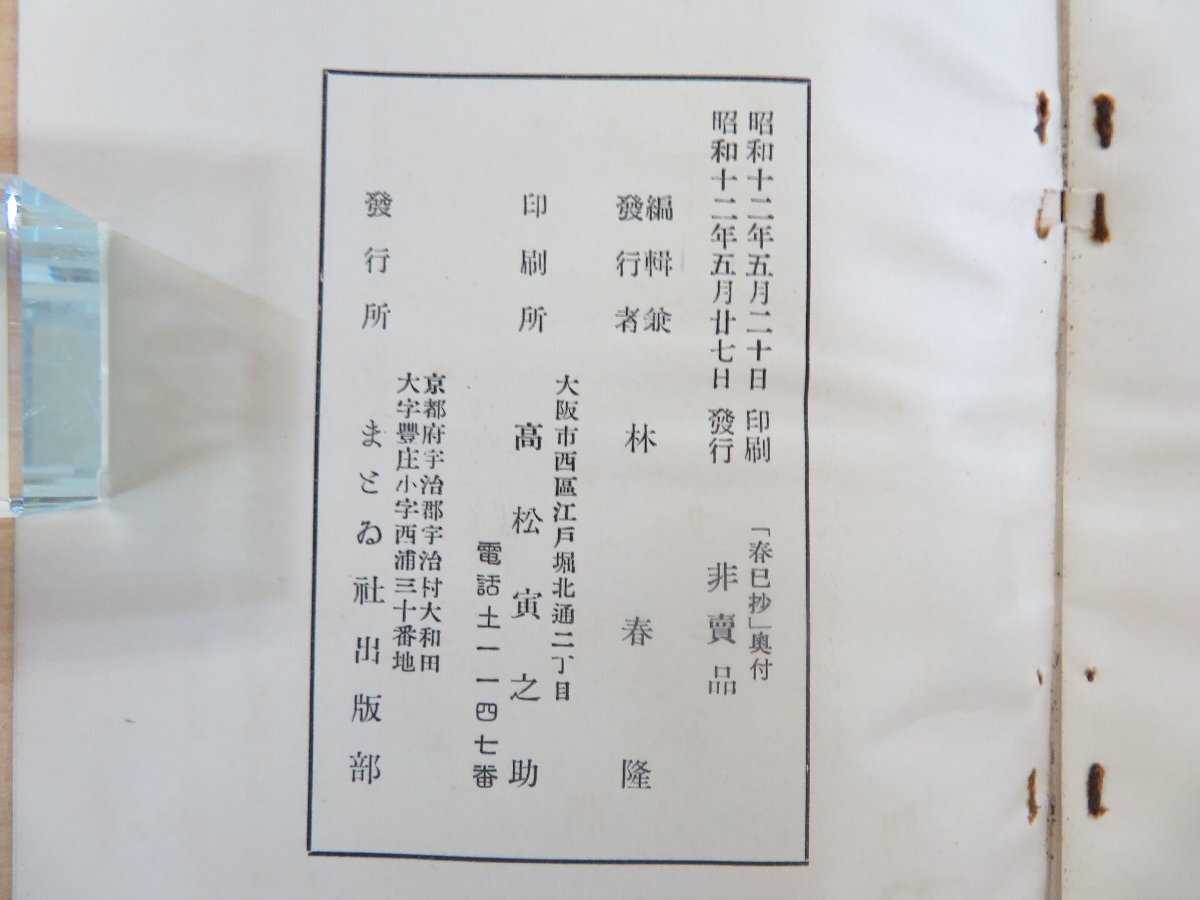 昭和十二年五月二十日 印刷 「春巳抄」奥付
昭和十二年五月廿七日 發行 非賣品
編輯兼
發行者 林春隆
大阪市西區江戸堀北通二丁目
印刷所 高松寅之助
電話土一一四七番
京都府宇治郡宇治村大和田
大字豐庄小字西浦三十番地
發行所 まとゐ社出版部